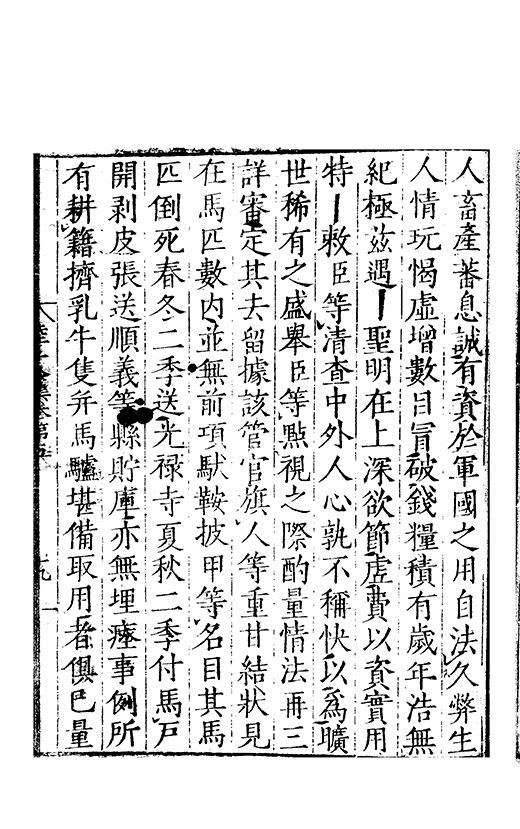 人畜產蕃息誠有資於軍國之用自法久弊生
人情玩愒虛增數目冒破錢糧積有歲年浩無
紀極茲遇｜聖明在上深欲節虛費以資實用
特｜敕臣等清查中外人心孰不稱快以為曠
世稀有之盛舉臣等點視之際酌量情法再三
詳審定其去留據該管官旗人等重甘結狀見
在馬匹數內並無前項馱鞍披甲等名目其馬
匹倒死春冬二季送光祿寺夏秋二季付馬戶
開剥皮張送順義等縣貯庫亦無埋瘞事例所
有耕籍擠乳牛隻并馬驢堪備取用者俱已量